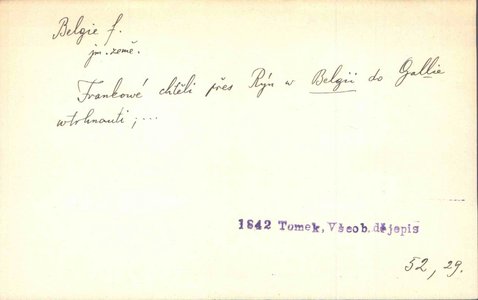 Belgie f.
jm. země.
Frankowé chtěli přes Rýn w Belgii do Gallie
wtrhnauti ; ...
1842 Tomek, Všeob. dějepis
52, 29.